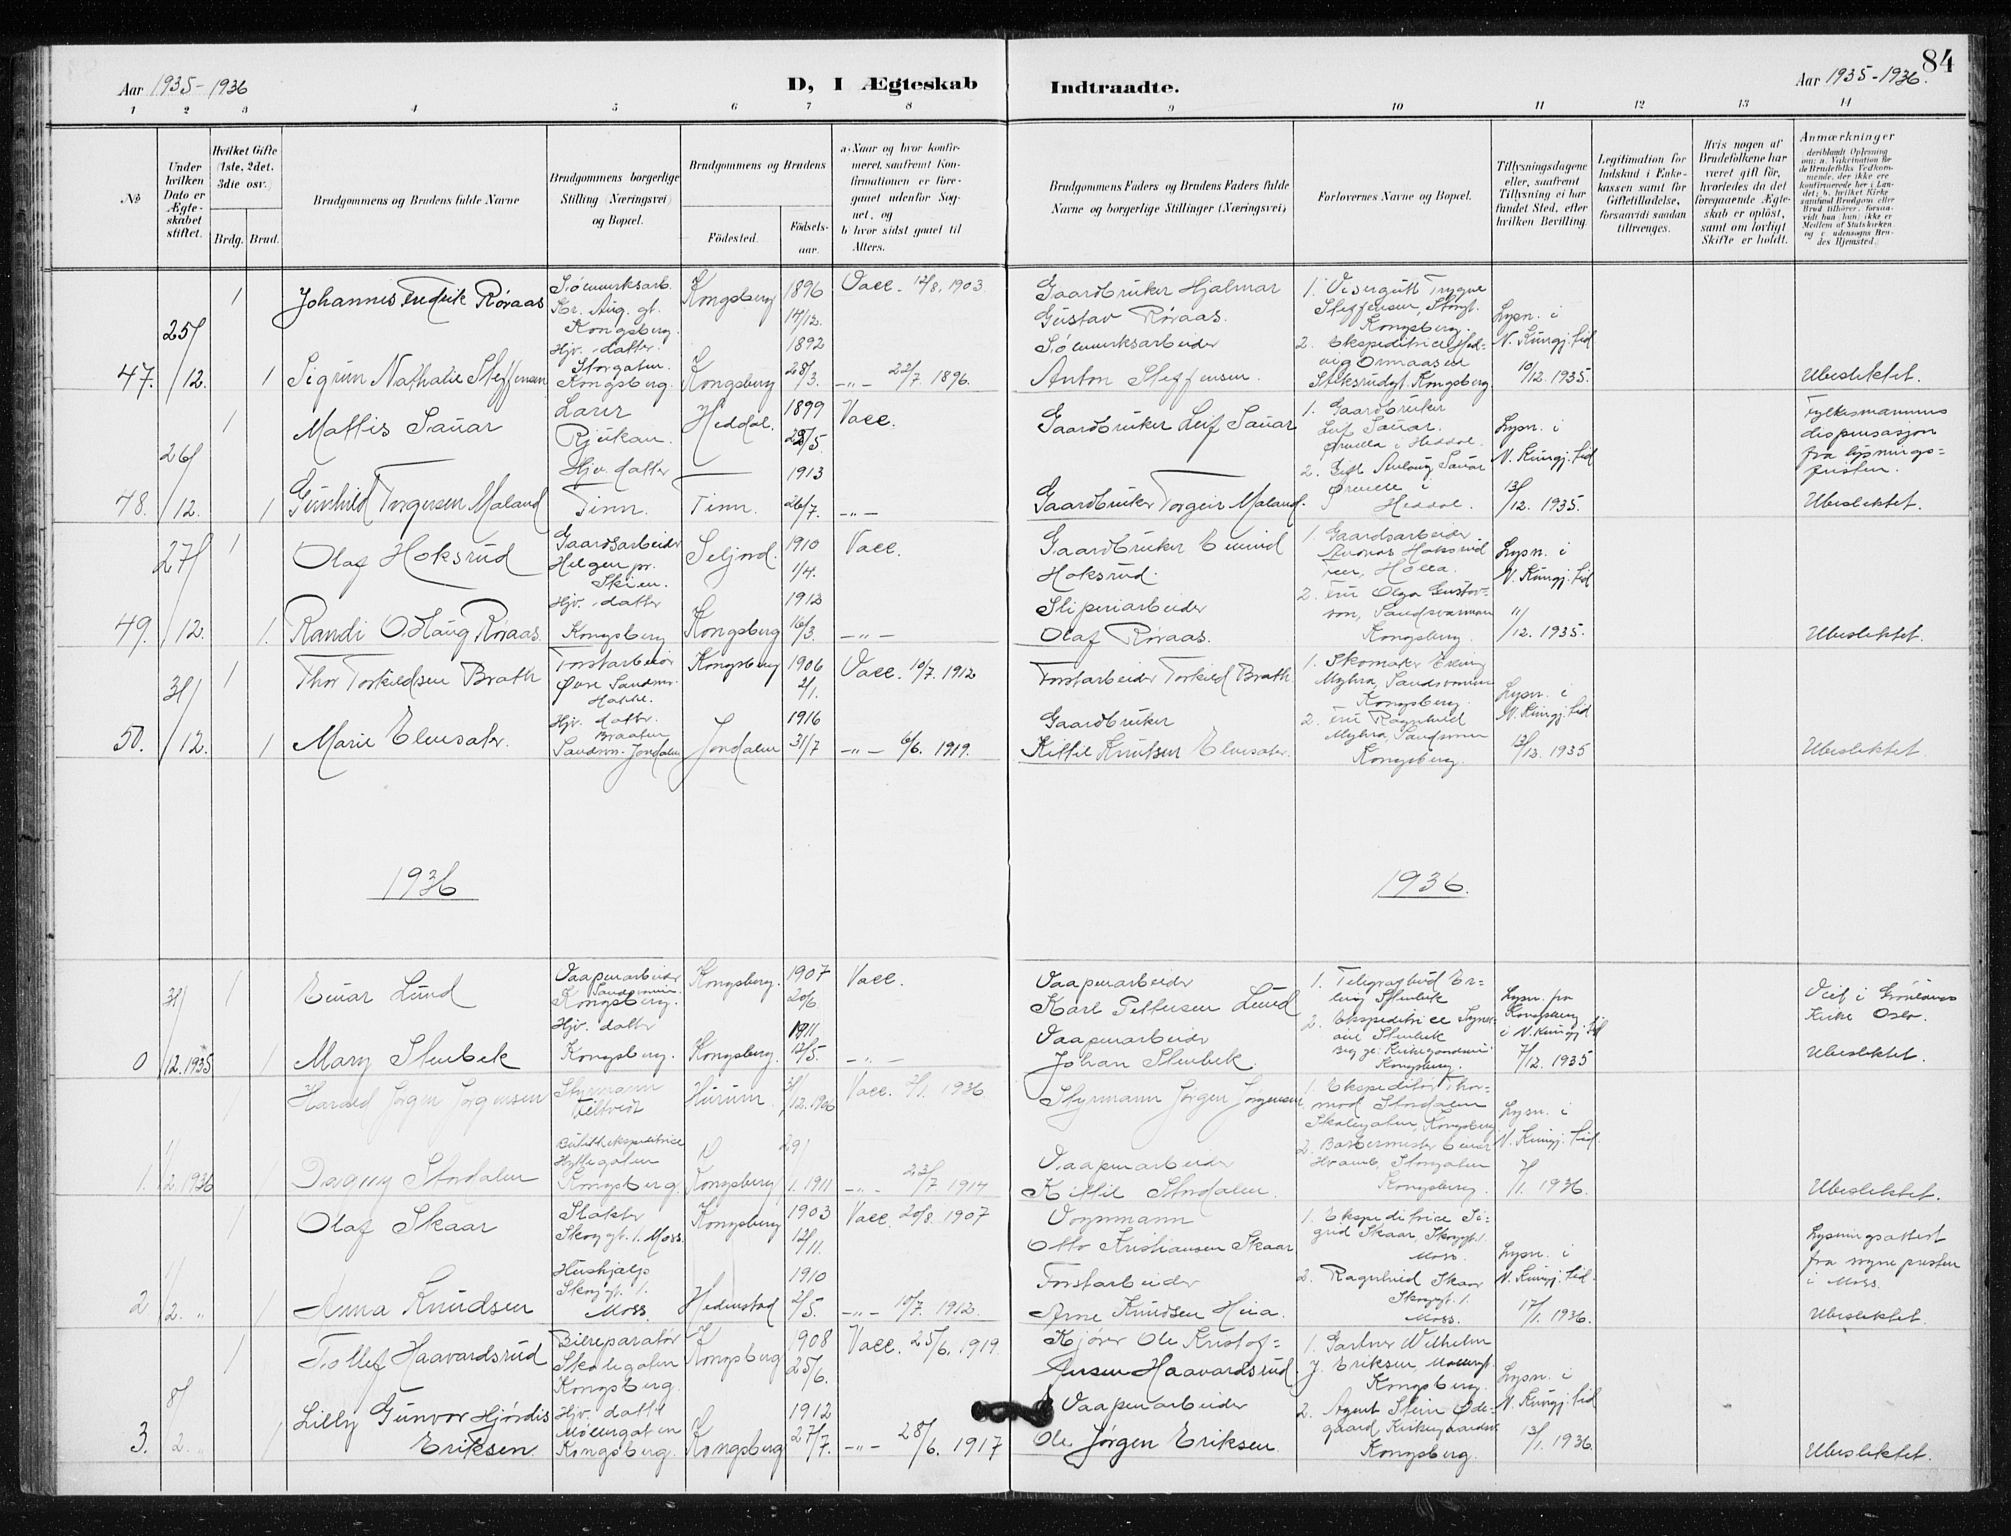 84
Aar 1935-1936
D, I Ægteskab
Indtraadte.
Aar 1935-1936.
1 2 3 4 5 6 7 8 9 10 11 12 13 14
No
Under hvilken Dato er Ægteskabet stiftet.
Hvilket Gifte (1ste, 2det, 3die osv.)
Brdg. Brud.
Brudgommens og Brudens fulde Navne
Brudgommens borgerlige Stilling (Næringsvei) og Bopæl.
Brudgommens og Brudens
Födested.
Födselsaar.
a. Naar og hvor konfirmeret, saafremt Konfirmationen er foregaaet udenfor Sognet, og
b. hvor sidst gaaet til Alters.
Brudgommens Faders og Brudens Faders fulde Navne og borgerlige Stillinger (Næringsvei)
Forlovernes Navne og Bopæl.
Tillysningsdagene eller, saafremt Tillysning ei har fundet Sted, efter hvilken Bevilling.
Legitimation for Indskud i Enkekassen samt for Giftetilladelse, forsaavidt saadan tiltrænges.
Hvis nogen af Brudefolkene har været gift för, hvorledes da det foregaaende Ægteskab er oplöst, samt om lovligt Skifte er holdt.
Anmærkninger
47. 25/12. 1
Johannes Fredrik Røraas
Sølvverksarb. Chr. Aug. gt. Kongsberg.
Kongsberg 1896 14/12.
Vacc. 12/8. 1903.
Gaardbruker Hjalmar Gustav Røraas.
1. Visergutt Trygve Steffensen, Storgt. Kongsberg.
1 Sigrun Nathalie Steffensen
Hjv. datter. Storgaten. Kongsberg.
Kongsberg 1892 28/3.
-"- 22/7 1896.
Sølvverksarbeider Anton Steffensen.
2. Ekspeditrice Ormaasen Kongsberg
Lysn. i N. Kungj. tid 10/12. 1935.
Ubeslektet.
48. 26/12. 1
Mattis Sauar
Lærer Rjukan.
Heddal. 1899 28/5
Vacc.
Gaardbruker Leif Sauar
1. Gaardbruker Leif Sauar. Ørvella i Heddal.
Fylkesmannens dispensasjon fra lysningsfristen.
1 Gunhild Torgersen Maland
Hjv. datter Tinn.
Tinn. 1913 26/7.
-"-
Gaardbruker Torgeir Maland.
2. Sauar Ørvella i Heddal.
Lysn. i N. Kungj. tid 13/12. 1935.
Ubeslektet.
49. 27/12. 1
Olaf Hoksrud
Gaardsarbeider Helgen pr. Skien.
Seljord. 1910 1/4.
Vacc.
Gaardbruker Eivind Hoksrud.
1. Gaardsarbeider Hoksrud Holla.
1. Randi O. Haug Røraas.
Hjv. datter Kongsberg
Kongsberg 1912 16/3.
-"-
Sliperiarbeider Olaf Røraas.
2. Fru Olga Gustavson, Sandsværmoen Kongsberg.
Lysn. i N. Kungj. tid 11/12. 1935.
Ubeslektet.
50. 31/12. 1
Thor Torkildsen Brath
Forstarbeider Øvre Sandsv.
Kongsberg 1906 2/1.
Vacc. 10/7. 1912
Forstarbeider Torkild Brath.
1. Skomaker Erling Myhra, Sandsværmoen Kongsberg.
1 Marie Elvesæter.
Hjv. datter. Braaten Sandsv. Jondalen
Jondalen 1916 31/7
-"- 6/6. 1919.
Gaardbruker Kittil Knutsen Elvesæter.
2. Fru Ragnhild Myhra, Kongsberg.
Lysn. i N. Kungj. tid 13/12. 1935
Ubeslektet.
1936
1936.
0 31/12. 1935 1
Einar Lund
Vaapenarbeider Kongsberg.
Kongsberg. 1907 20/6
Vacc.
Vaapenarbeider Karl Pettersen Lund
1. Telegrafbud Erling Stenbek
Viet i Grønlands Kirke Oslo.
1 Mary Stenbek
Hjv. datter Kongsberg.
Kongsberg. 1911 12/5.
-"-
Vaapenarbeider Johan Stenbek.
2. Ekspeditrice Stenbek Kongsberg.
Lysn. fra Kongsberg i N. Kungj. tid 7/12. 1935
Ubeslektet.
1. 1/2. 1936 1
Harald Jørgen Jørgensen
Styrmann Filtvedt
Hurum. 31/12. 1906
Vacc. 3/1. 1936
Styrmann Jørgen Jørgensen
1. Ekspeditør Thormod Stordalen Skolegaten, Kongsberg
1 Dagny Stordalen
Hyttegaten Kongsberg
Kongsberg 29/1. 1911
-"- 23/7 1914
Vaapenarbeider Kittil Stordalen.
2. Barbermester Einar Storgaten Kongsberg.
Lysn. i N. Kungj. tid. 7/1. 1936.
Ubeslektet.
2 1/2. " 1
Olaf Skaar
Slakter Skoggt. 1. Moss.
Kongsberg 1903 12/11.
Vacc. 20/8. 1907
Vognmann Otto Kristiansen Skaar
1. Ekspeditrice Sigrid Skaar, Skoggt. 1. Moss.
Lysningsattest fra sognepresten i Moss.
1 Anna Knudsen
Hushjelp Skoggt. 1. Moss.
Hedenstad 1910 2/5.
-"- 10/7. 1912.
Forstarbeider Arne Knudsen Heia.
2. Ragnhild Skaar Skoggt. 1. Moss.
Lysn. i N. Kungj. tid. 17/1. 1936.
Ubeslektet.
3. 8/2. " 1
Tollef Haavardsrud
Bilreparatør Skolegaten Kongsberg.
Kongsberg 908 25/6.
Vacc. 25/6. 1919.
Kjører Ole Kristoffersen Haavardsrud.
1. Gartner Wilhelm J. Eriksen Kongsberg.
1 Lilly Gunvor Hjørdis Eriksen
Hjv. datter Møllergaten Kongsberg.
Kongsberg 1912 27/7.
-"- 28/6. 1917
Vaapenarbeider Ole Jørgen Eriksen.
2. Agent Stein Ødegaard, Kongsberg.
Lysn. i N. Kungj. tid 13/1. 1936.
Ubeslektet.